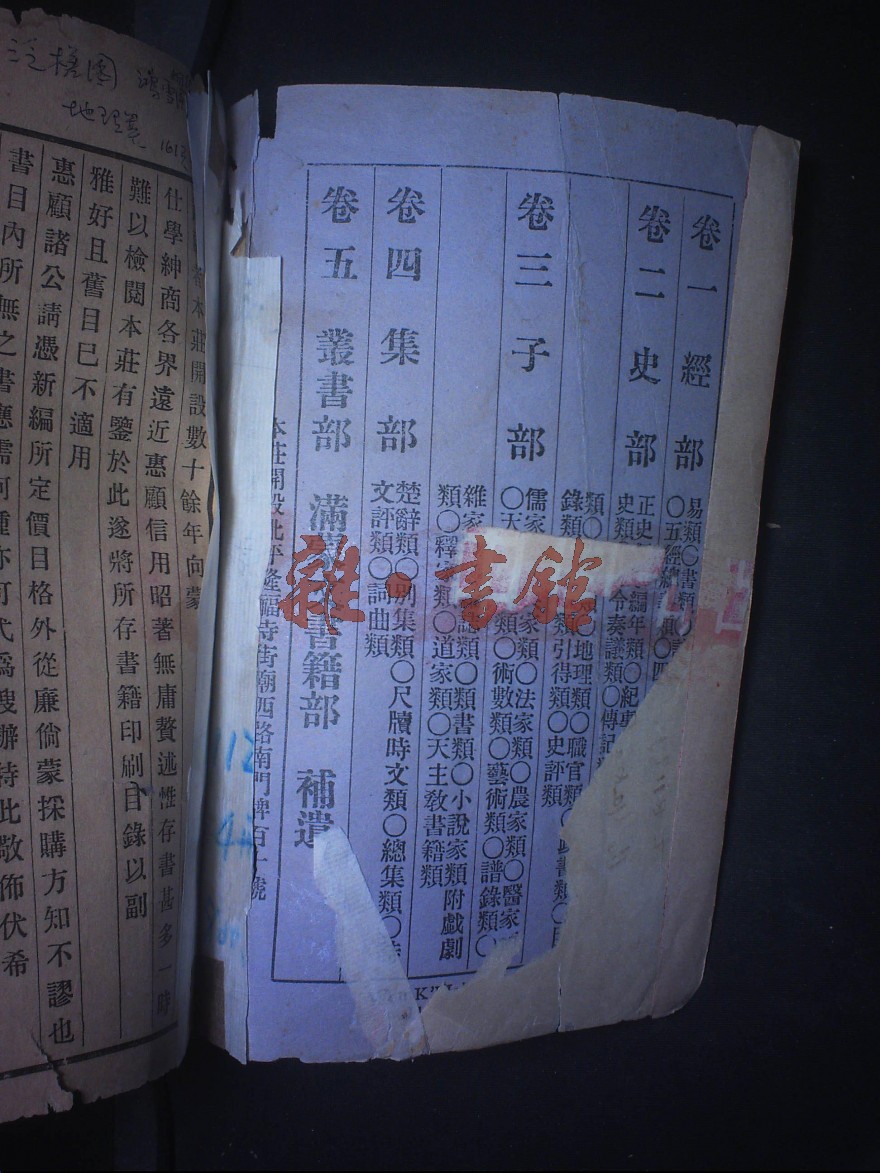 卷一 經部
易類〇書類〇
〇五經總
卷二 史部
正史 編年類〇紀事
史類 令奏議類〇傳記
類〇 〇地理類〇職官類
錄類 類引得類〇史評類
卷三 子部
儒家 家類〇法家類〇農家類〇醫家
〇天 類〇術數類〇藝術類〇譜錄類〇
雜家 類〇類書類〇小說家類附戲劇
類〇釋家類〇道家類〇天主敎書籍類
卷四 集部
楚辭類〇別集類〇尺牘時文類〇總集類〇
文評類〇詞曲類
卷五 叢書部 滿 書籍部 補遺
本莊開設北平隆福寺街廟西路南門牌百十 號
雜·書館
本莊開設數十餘年向蒙
仕學紳商各界遠近惠顧信用昭著無庸贅述惟存書甚多一時
難以檢閱本莊有鑒於此遂將所存書籍印刷目錄以副
雅好且舊目已不適用
惠顧諸公請憑新編所定價目格外從廉倘蒙採購方知不謬也
書目內所無之書應需何種亦可代爲搜辦特此敬佈伏希
地理
161
112